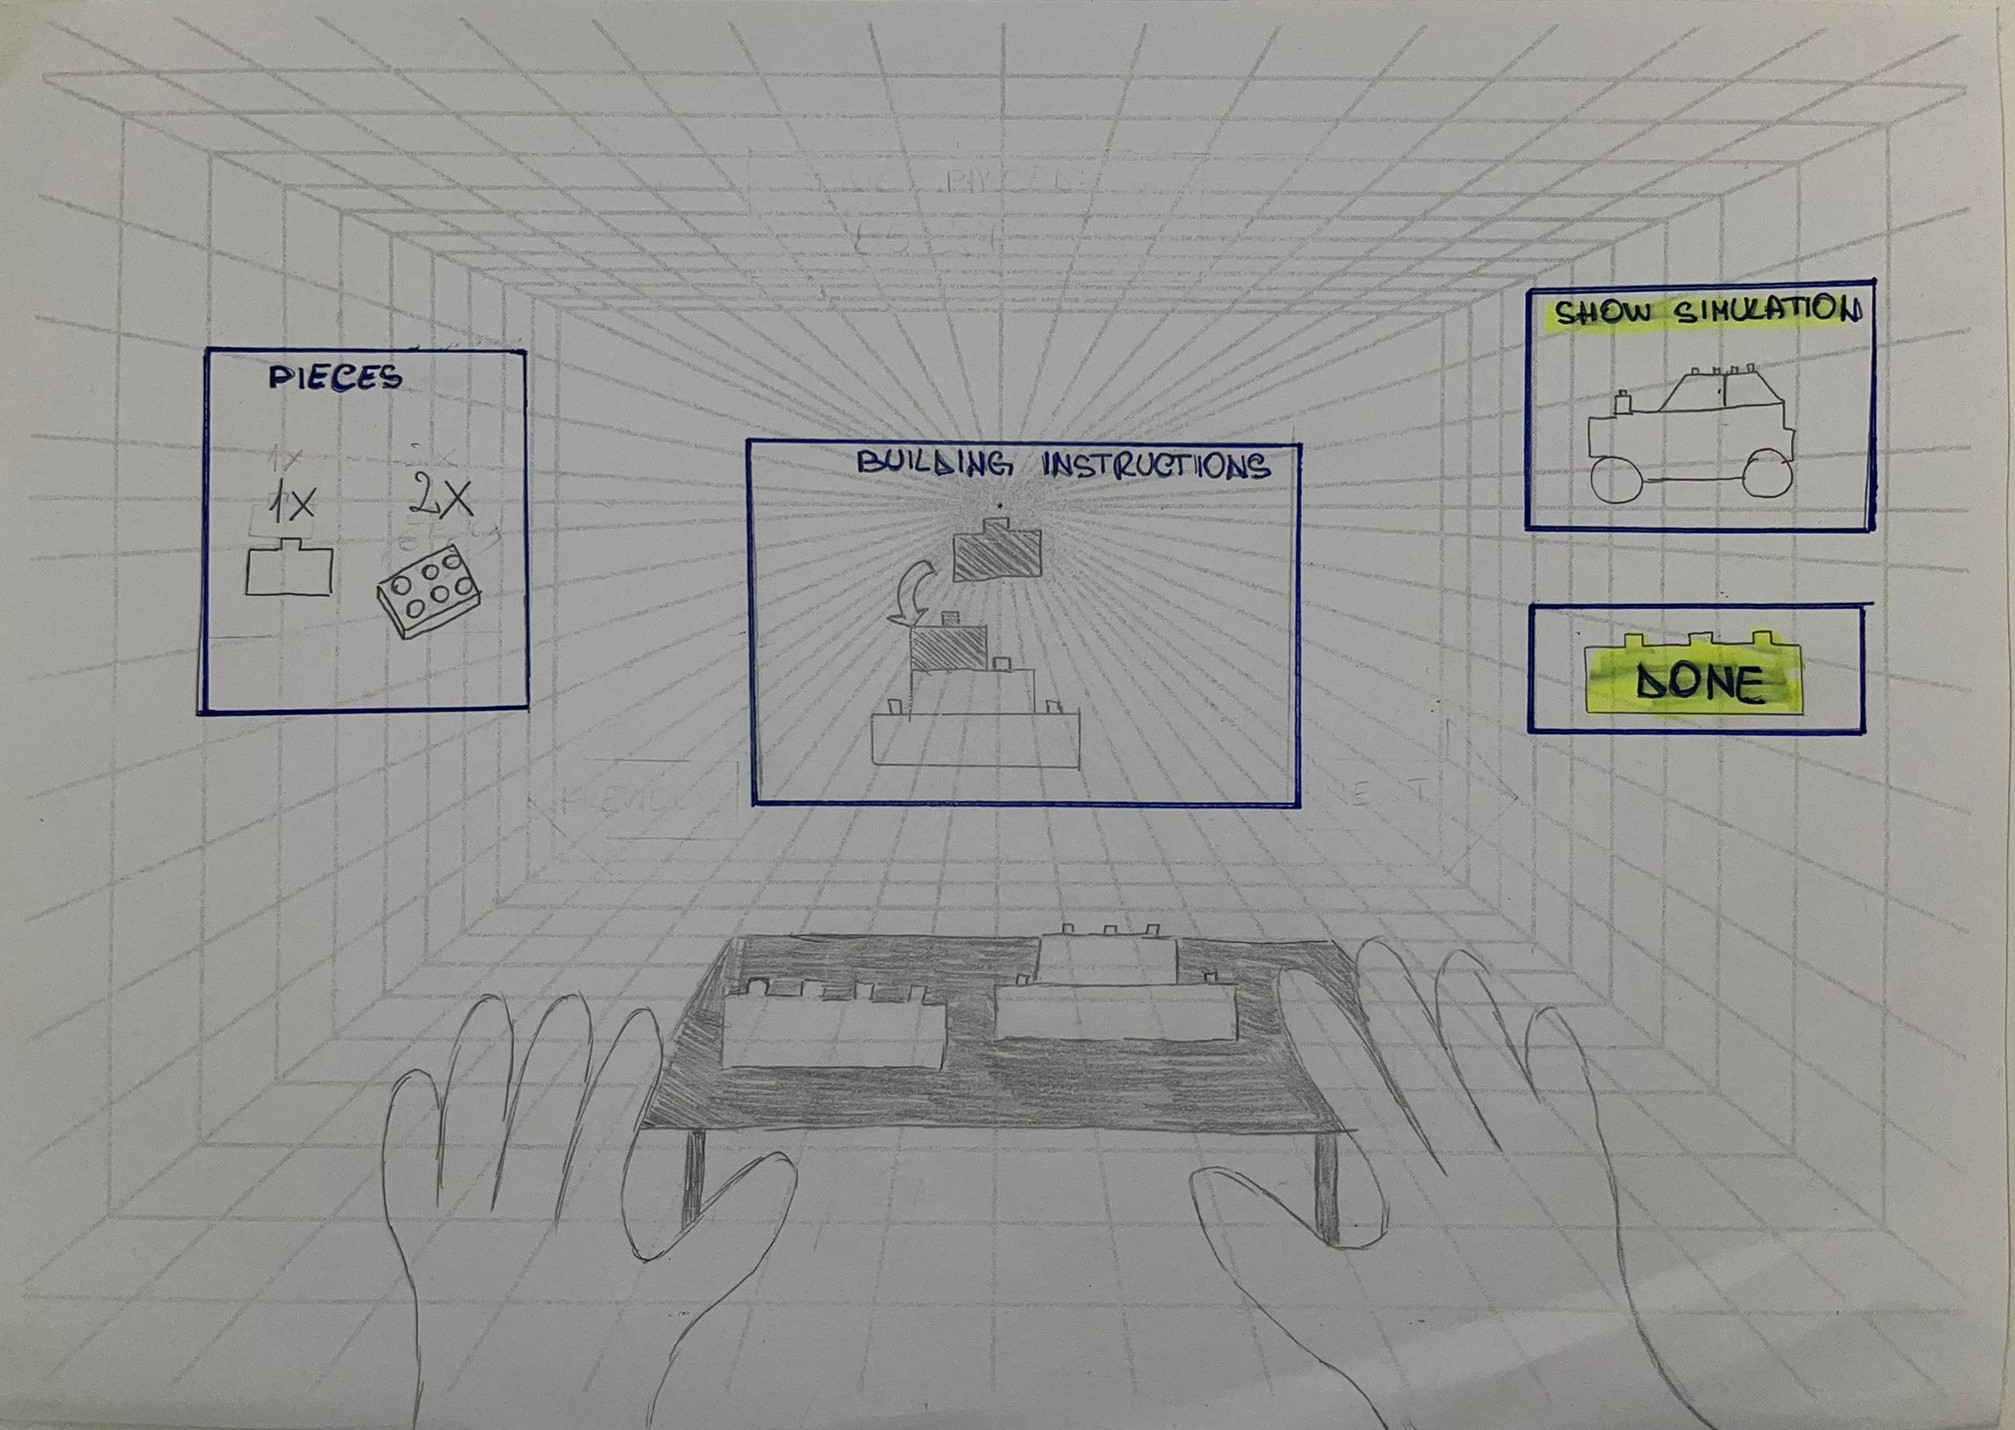 PIECES
1X 2X
BUILDING INSTRUCTIONS
SHOW SIMULATION
DONE